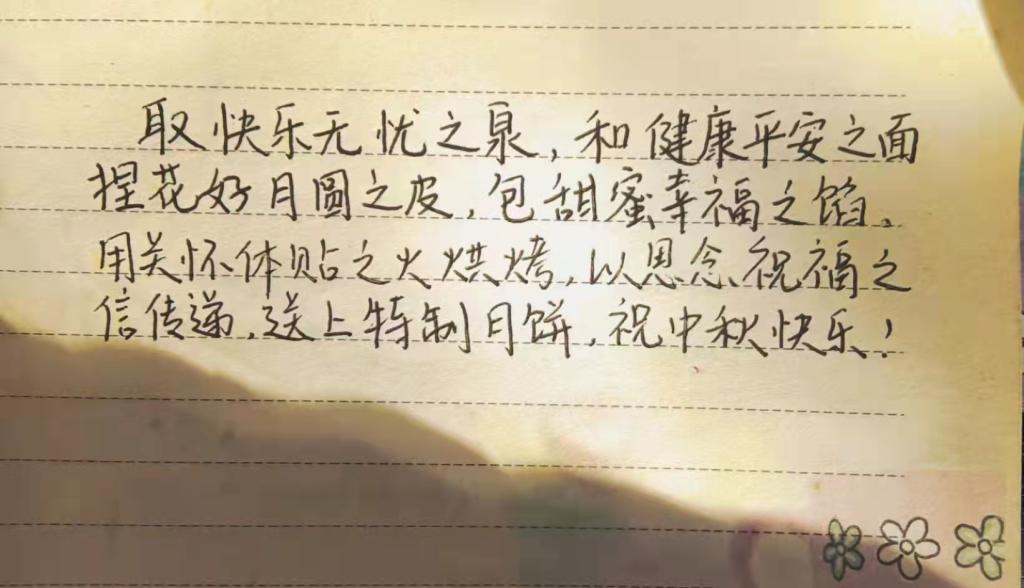 取快乐无忧之泉,和健康平安之面
捏花好月圆之皮,包甜蜜幸福之馅。
用关怀体贴之火烘烤,以思念祝福之
信传递,送上特制月饼,祝中秋快乐!